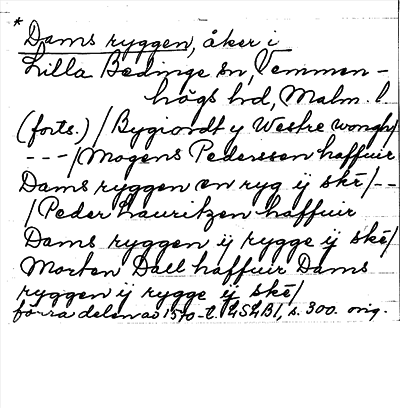 * Dams ryggen, åker i
Lilla Bedinge sn, Vemmen-
högs hd, Malm. l.
(forts.) / Bygiordt y Westre wongh/
---/Mogens Pederssen haffuir
Dams ryggen en ryg ij skē/--
/Peder Lauritzen haffuir
Dams ryggen ij rygge ij skē/
Morten Dall haffuir Dams
ryggen ij rygge ij skē/
förra delen av 1570-t. LSLB1, s. 300. orig.